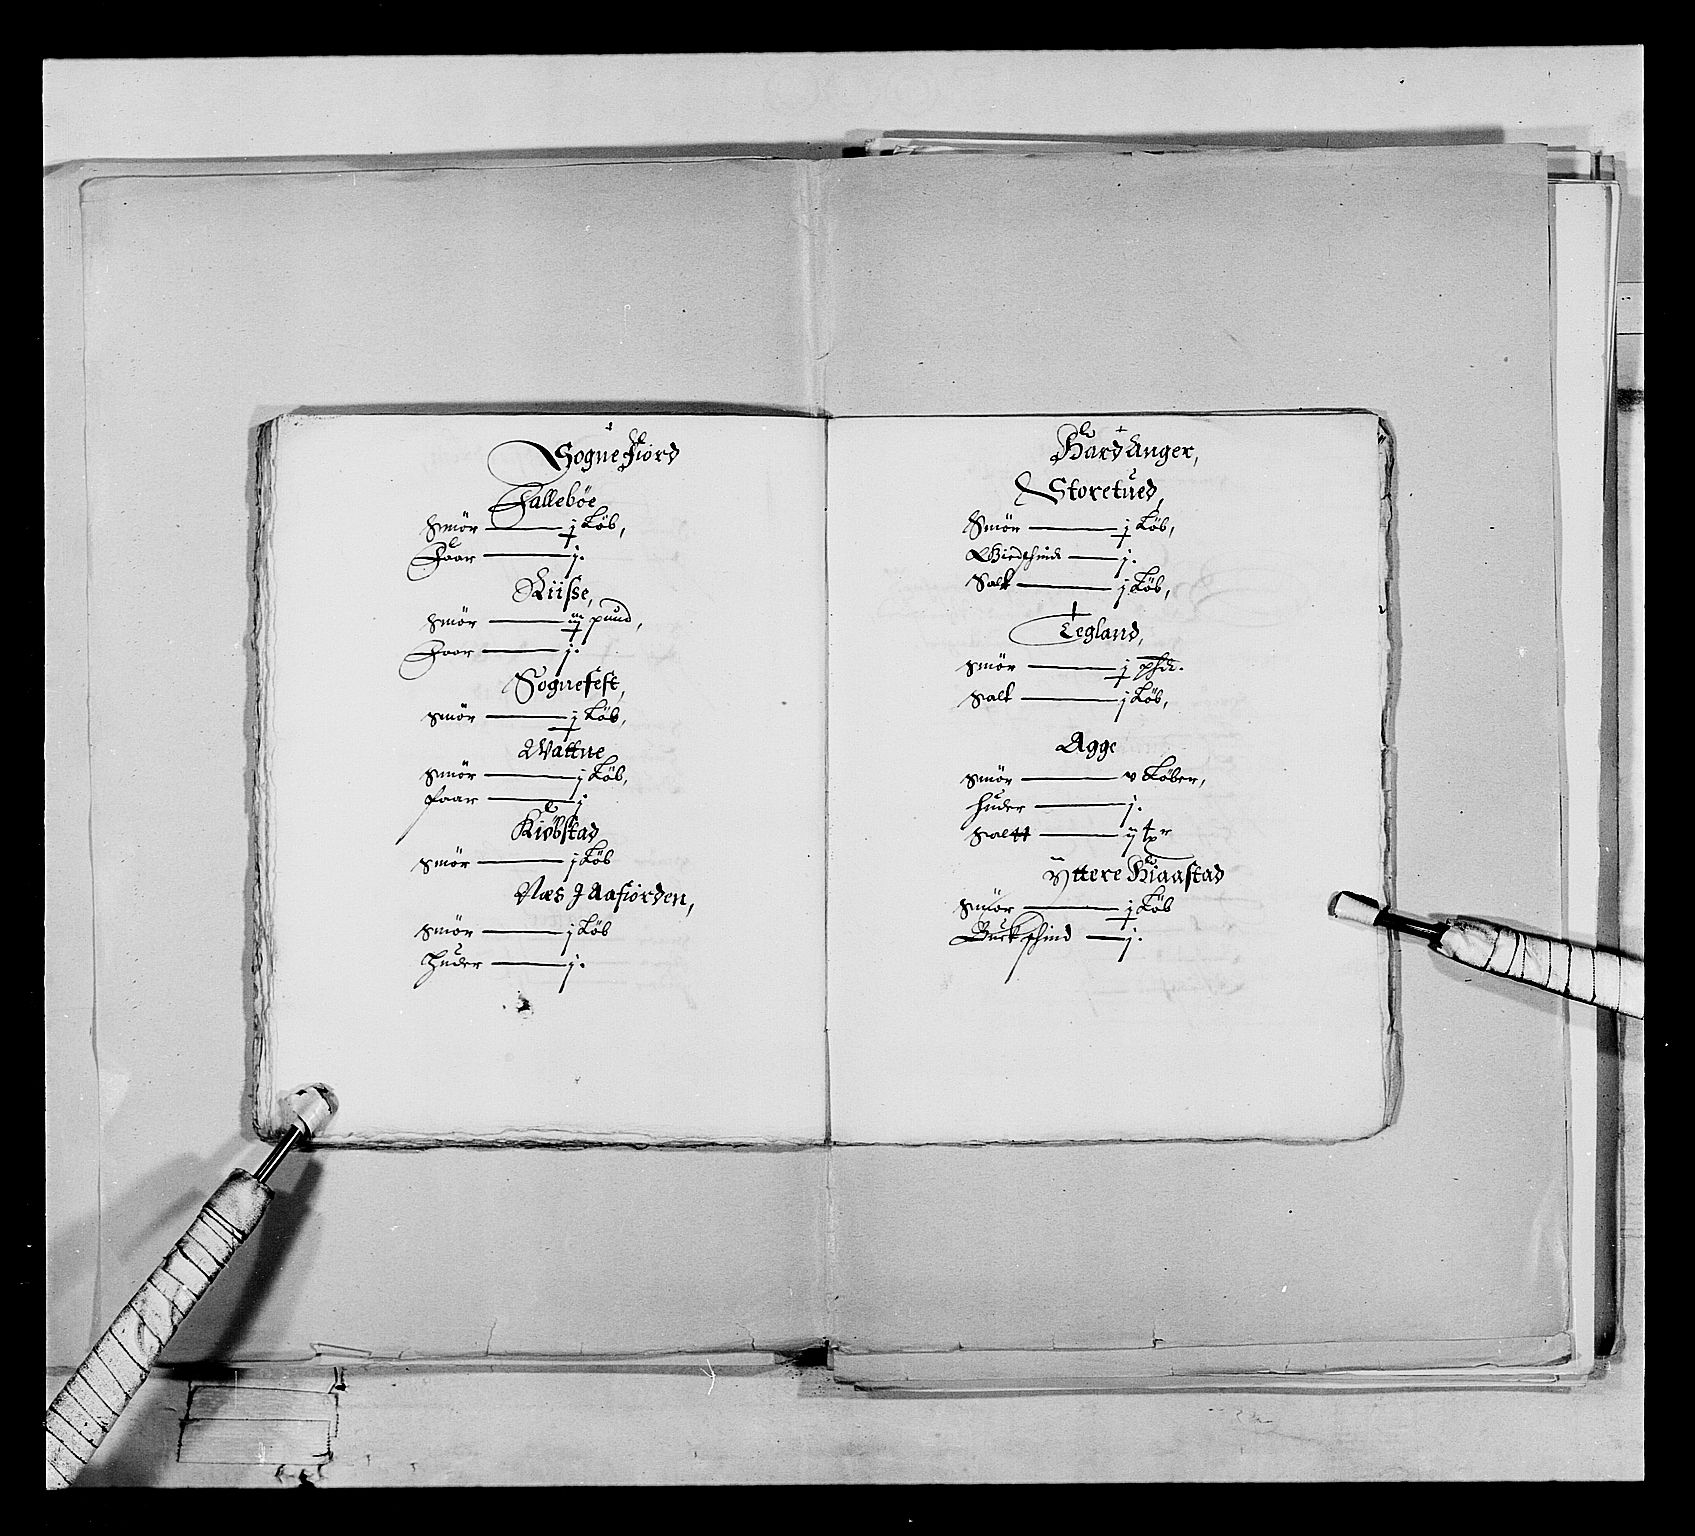 Sogne Fiord
Falleböe
Smör — j Löb,
Faar — j.
Riisse,
Smör — iij pund,
Faar — j.
Sognefest,
Smör — j Löb,
Wattne
Smör — j Löb,
faar — j
Kiöbstad
Smör — j Löb
Næs J Aafiorden,
Smör — j Löb
Huder — j.
Hard Anger,
Storetued,
Smör — j Löb,
Giedschind — j.
Salt — j Löb,
Tegland,
Smör — j
Salt — j Löb,
Agge
Smör — v Löber,
Huder — j.
Saltt — ij tpr
Yttere Kiaastad
Smör — j Löb
Buckschind — j.